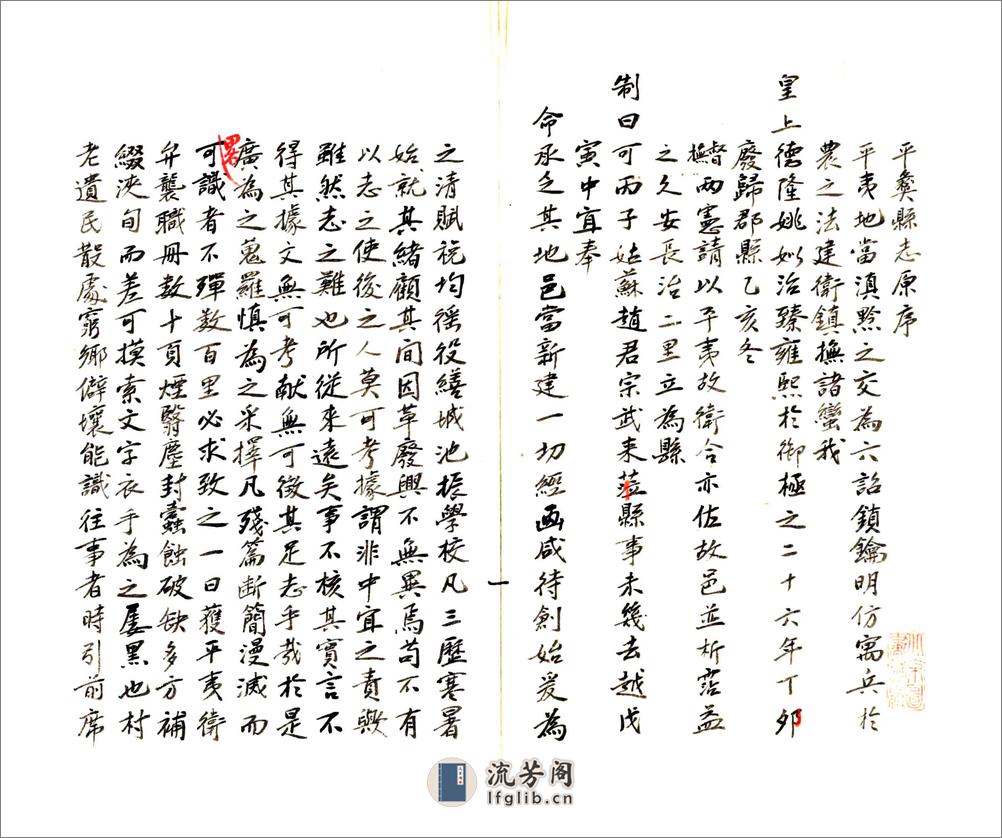 平彜縣志原序
平夷地當滇黔之交為六詔鎖鑰明仿寓兵於
農之法建衛鎮撫諸蠻我
皇上德隆姚姒治臻雍熙於御極之二十六年丁卯
廢歸郡縣乙亥冬
督撫兩憲請以平夷故衛合亦佐故邑並析霑益
之久安長治二里立為縣
制曰可丙子姑蘇趙君宗武来蒞縣事未幾去越戊
寅中宜奉
命承乏其地邑當新建一切經画咸待創始爰為
之清賦稅均徭役繕城池振學校凡三歷寒暑
始就其緒顧其間因革廢興不無異焉苟不有
以志之使後之人莫可考據謂非中宜之責歟
雖然志之難也所從来遠矣事不核其實言不
得其據文無可考献無可徵其足志乎哉於是
廣為之蒐羅慎為之采擇凡殘篇断簡漫滅而
畧可識者不殫数百里必求致之一日獲平夷衛
弁襲職冊数十頁煙翳塵封蠹蝕破缺多方補
綴浹旬而差可摸索文字衣手為之屢黑也村
老遺民散處窮鄉僻壤能識往事者時引前席
一
流芳阁
lfglib.cn